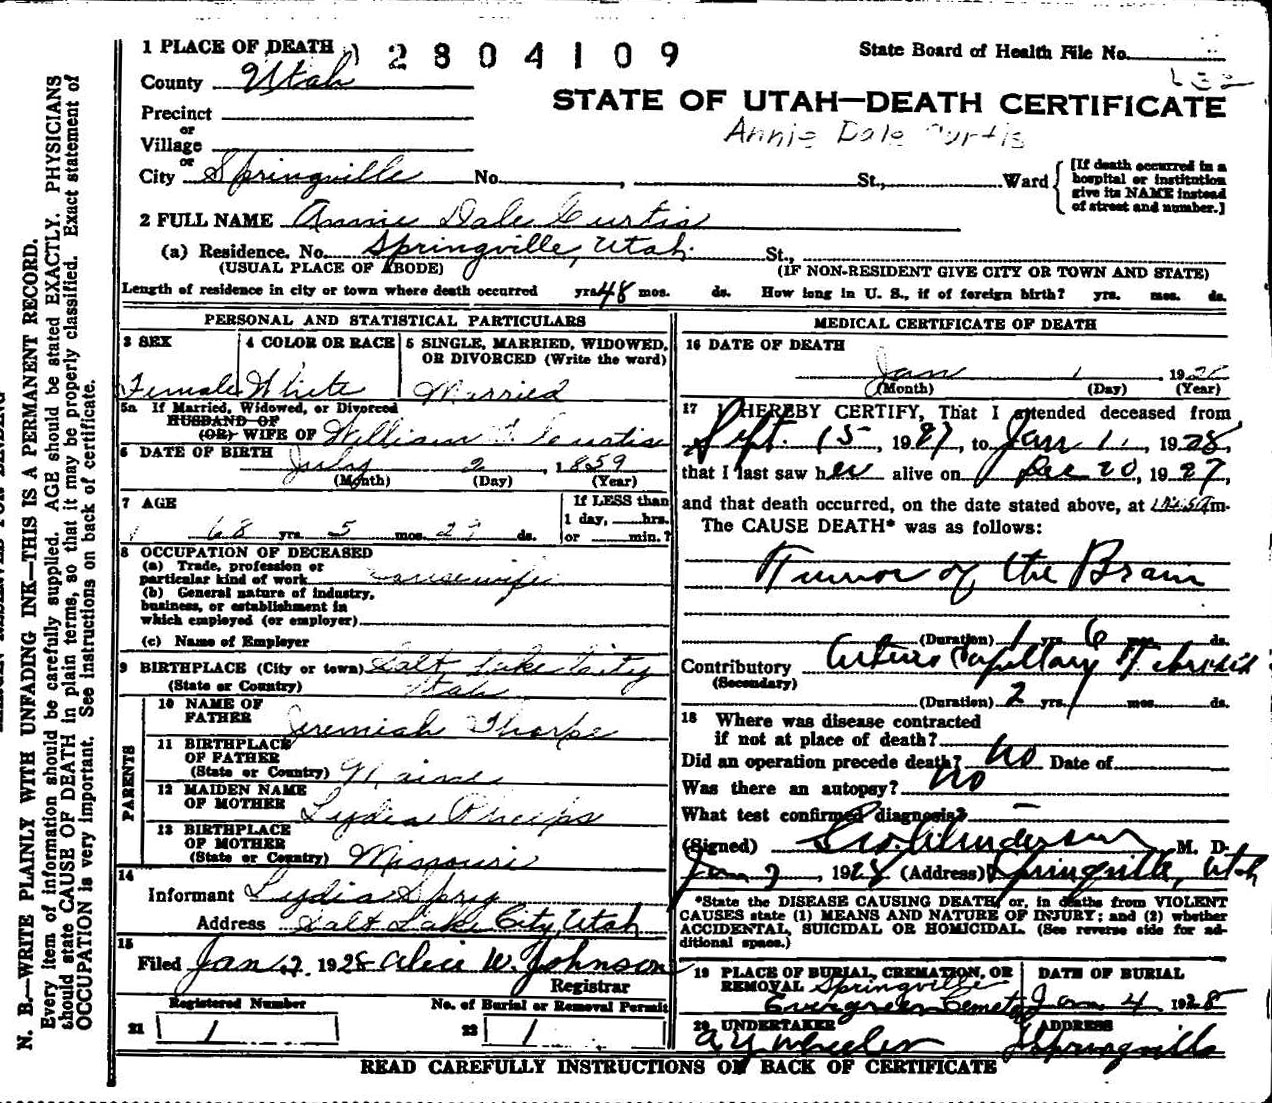 1 PLACE OF DEATH 2804109 State Board of Health File No.
County Utah
STATE OF UTAH—DEATH CERTIFICATE
Precinct
Annie Dale Curtis
or
Village
or
City Springville No. , St., Ward
[If death occurred in a hospital or institution give its NAME instead of street and number.]
2 FULL NAME Annie Dale Curtis
(a) Residence. No. Springville, Utah. St.,
(USUAL PLACE OF ABODE) (IF NON-RESIDENT GIVE CITY OR TOWN AND STATE)
Length of residence in city or town where death occurred yrs. 48 mos. ds. How long in U. S., if of foreign birth? yrs. mos. ds.
PERSONAL AND STATISTICAL PARTICULARS
3 SEX 4 COLOR OR RACE 5 SINGLE, MARRIED, WIDOWED, OR DIVORCED (Write the word)
Female White Married
5a If Married, Widowed, or Divorced
HUSBAND OF
(OR) WIFE OF William Curtis
6 DATE OF BIRTH July 2, 1859
(Month) (Day) (Year)
7 AGE If LESS than
1 day, hrs.
68 yrs. 5 mos. 29 ds. or min.?
8 OCCUPATION OF DECEASED
(a) Trade, profession or
particular kind of work Housewife
(b) General nature of industry,
business, or establishment in
which employed (or employer)
(c) Name of Employer
9 BIRTHPLACE (City or town) Salt Lake City
(State or Country) Utah
PARENTS
10 NAME OF
FATHER Jeremiah Thorpe
11 BIRTHPLACE
OF FATHER
(State or Country) Maine
12 MAIDEN NAME
OF MOTHER Lydia Phelps
13 BIRTHPLACE
OF MOTHER
(State or Country) Missouri
14
Informant Lydia Spry
Address Salt Lake City, Utah
15
Filed Jan 2, 1928 Alice W. Johnson
Registrar
Registered Number No. of Burial or Removal Permit
21 1 22 1
MEDICAL CERTIFICATE OF DEATH
16 DATE OF DEATH
Jan 1 19
(Month) (Day) (Year)
17 I HEREBY CERTIFY, That I attended deceased from
Sept. 15, 1927, to Jan 1, 1928,
that I last saw her alive on Dec 20, 1927,
and that death occurred, on the date stated above, at m.
The CAUSE DEATH* was as follows:
Tumor of the Brain
(Duration) 1 yrs. 6 mos. ds.
Contributory Capillary
(Secondary)
(Duration) 2 yrs. mos. ds.
18 Where was disease contracted
if not at place of death?
Did an operation precede death? No Date of
Was there an autopsy? No
What test confirmed diagnosis? —
(Signed) Anderson M. D.
Jan 2, 1928 (Address) Springville, Utah
*State the DISEASE CAUSING DEATH, or, in deaths from VIOLENT
CAUSES state (1) MEANS AND NATURE OF INJURY; and (2) whether
ACCIDENTAL, SUICIDAL OR HOMICIDAL. (See reverse side for ad-
ditional space.)
19 PLACE OF BURIAL, CREMATION, OR DATE OF BURIAL
REMOVAL Springville
Evergreen Cemetery Jan 4 1928
20 UNDERTAKER ADDRESS
A. Y. Wheeler Springville
READ CAREFULLY INSTRUCTIONS ON BACK OF CERTIFICATE
N. B.—WRITE PLAINLY WITH UNFADING INK—THIS IS A PERMANENT RECORD.
Every item of information should be carefully supplied. AGE should be stated EXACTLY. PHYSICIANS
should state CAUSE OF DEATH in plain terms, so that it may be properly classified. Exact statement of
OCCUPATION is very important. See instructions on back of certificate.